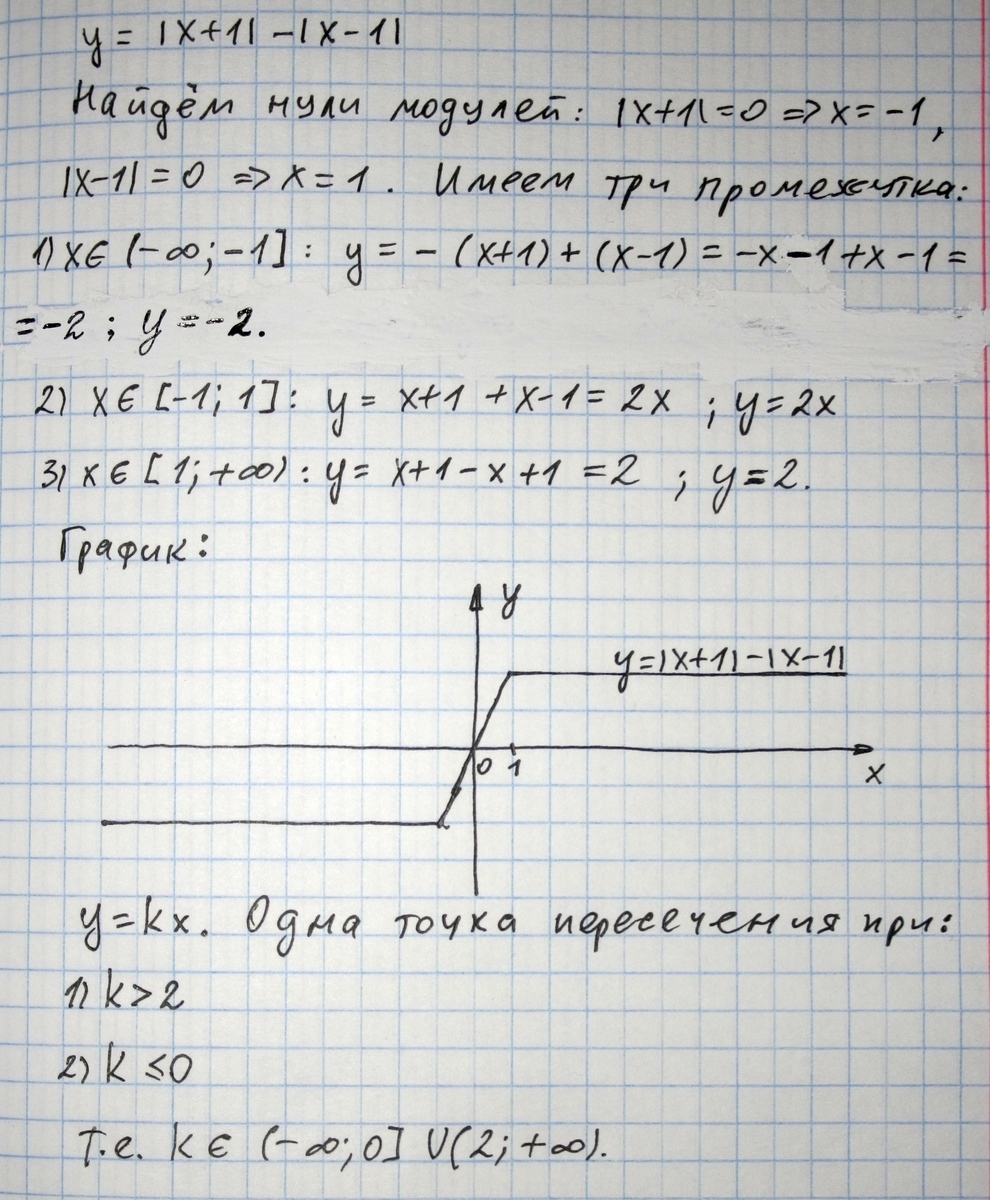 y = |x+1| - |x-1|
Найдём нули модулей: |x+1|=0 => x=-1,
|x-1|=0 => x=1. Имеем три промежутка:
1) x∈(-∞;-1]: y = -(x+1)+(x-1) = -x-1+x-1 =
=-2 ; y=-2.
2) x∈[-1;1]: y = x+1+x-1 = 2x ; y=2x
3) x∈[1;+∞): y = x+1-x+1 = 2 ; y=2.
График:
y
y=|x+1|-|x-1|
0 1
x
y=kx. Одна точка пересечения при:
1) k>2
2) k≤0
т.е. k∈(-∞;0]∪(2;+∞).